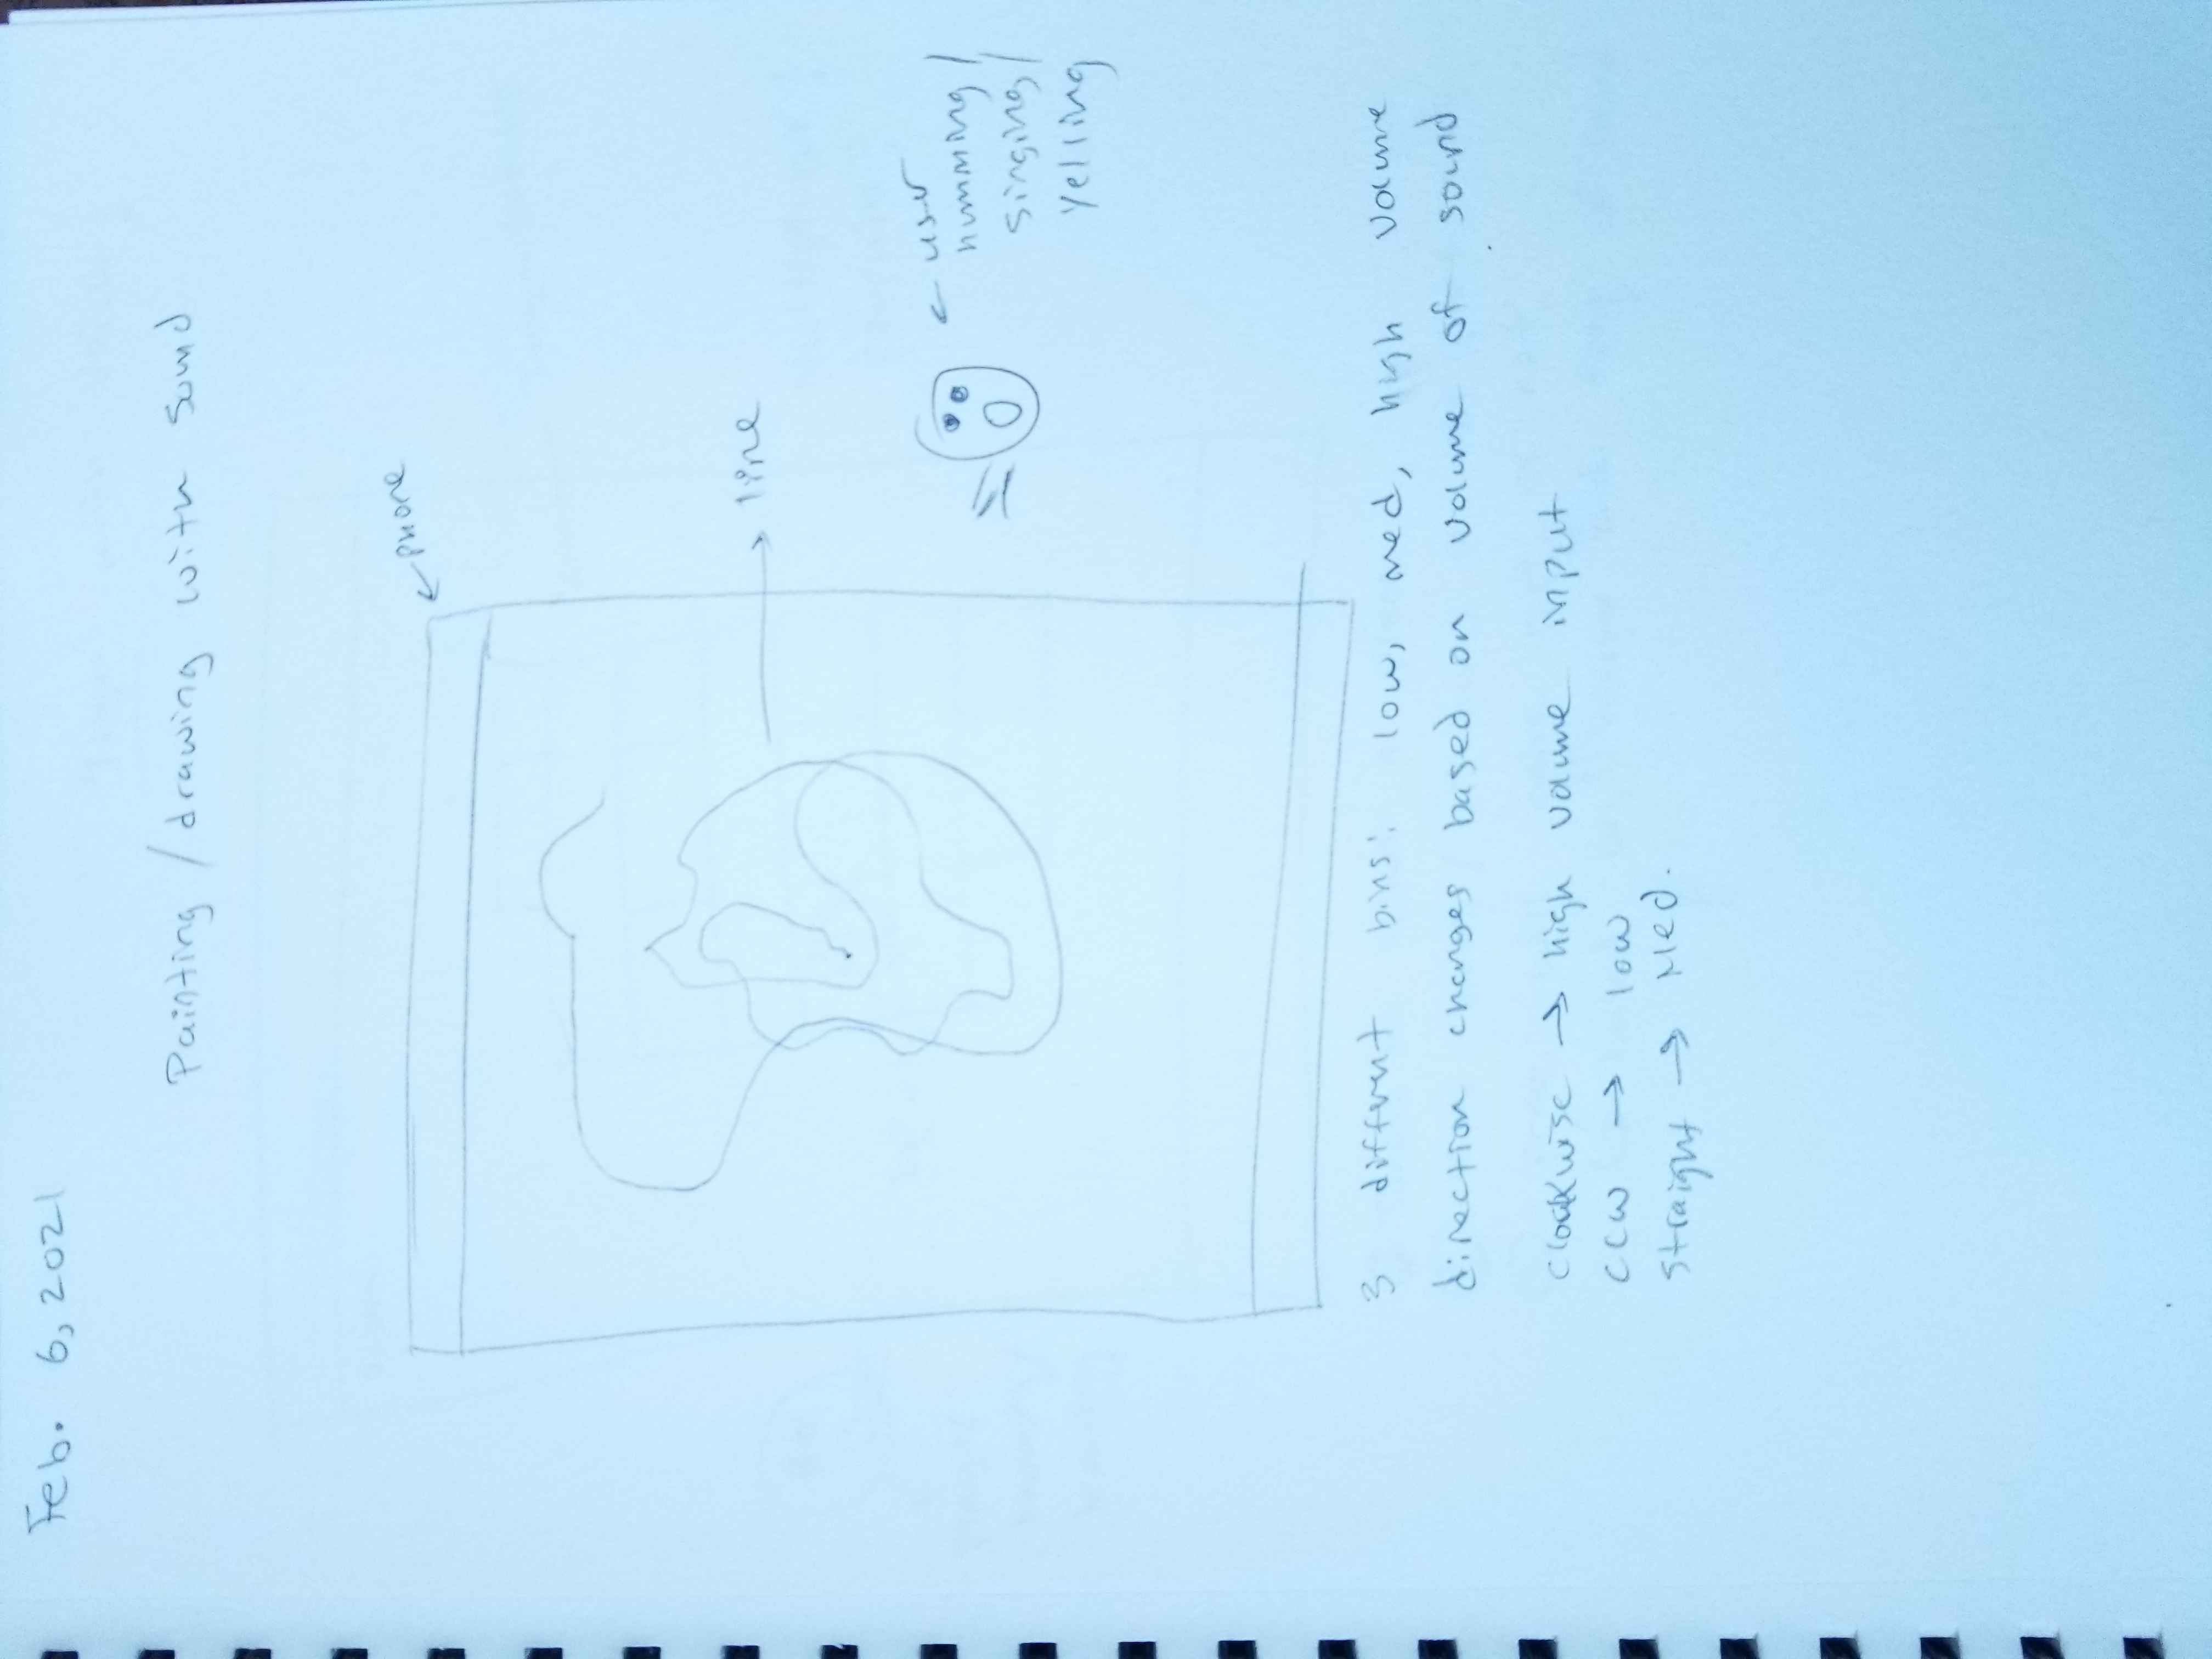 Feb. 6, 2021
Painting / drawing with sound
← phone
→ line
← user
humming /
singing /
yelling
3 different bins: low, med, high volume
direction changes based on volume of sound
clockwise → high volume input
CCW → low
straight → Med.